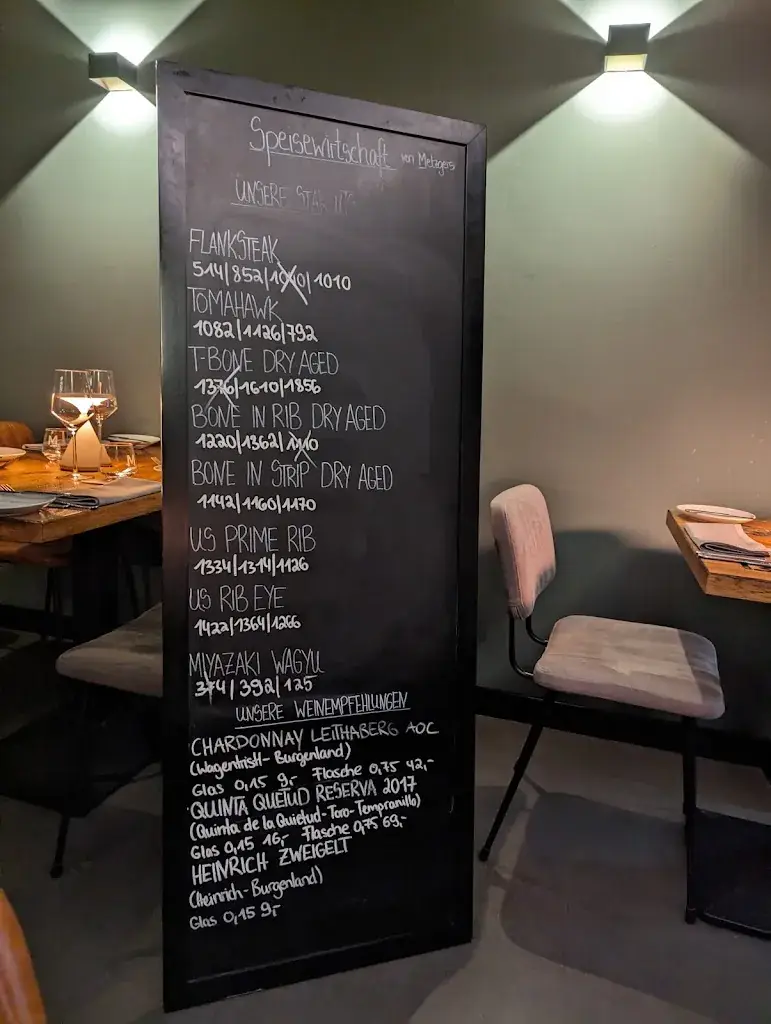 Speisewirtschaft von Metzgers
UNSERE
FLANKSTEAK
514/852/1010
TOMAHAWK
1082/1126/792
T-BONE DRY AGED
1376/1610/1856
BONE IN RIB DRY AGED
1220/1362/
BONE IN STRIP DRY AGED
1142/1160/1170
US PRIME RIB
1334/1314/1126
US RIB EYE
1422/1364/1266
MIYAZAKI WAGYU
374/392/125
UNSERE WEINEMPFEHLUNGEN
CHARDONNAY LEITHABERG AOC
(Wagentristl-Burgenland)
Glas 0,15 9,- Flasche 0,75 42,-
QUINTA QUETUD RESERVA 2017
(Quinta de la Quietud-Toro-Tempranillo)
Glas 0,15 16,- Flasche 0,75 69,-
HEINRICH ZWEIGELT
(Heinrich-Burgenland)
Glas 0,15 9,-